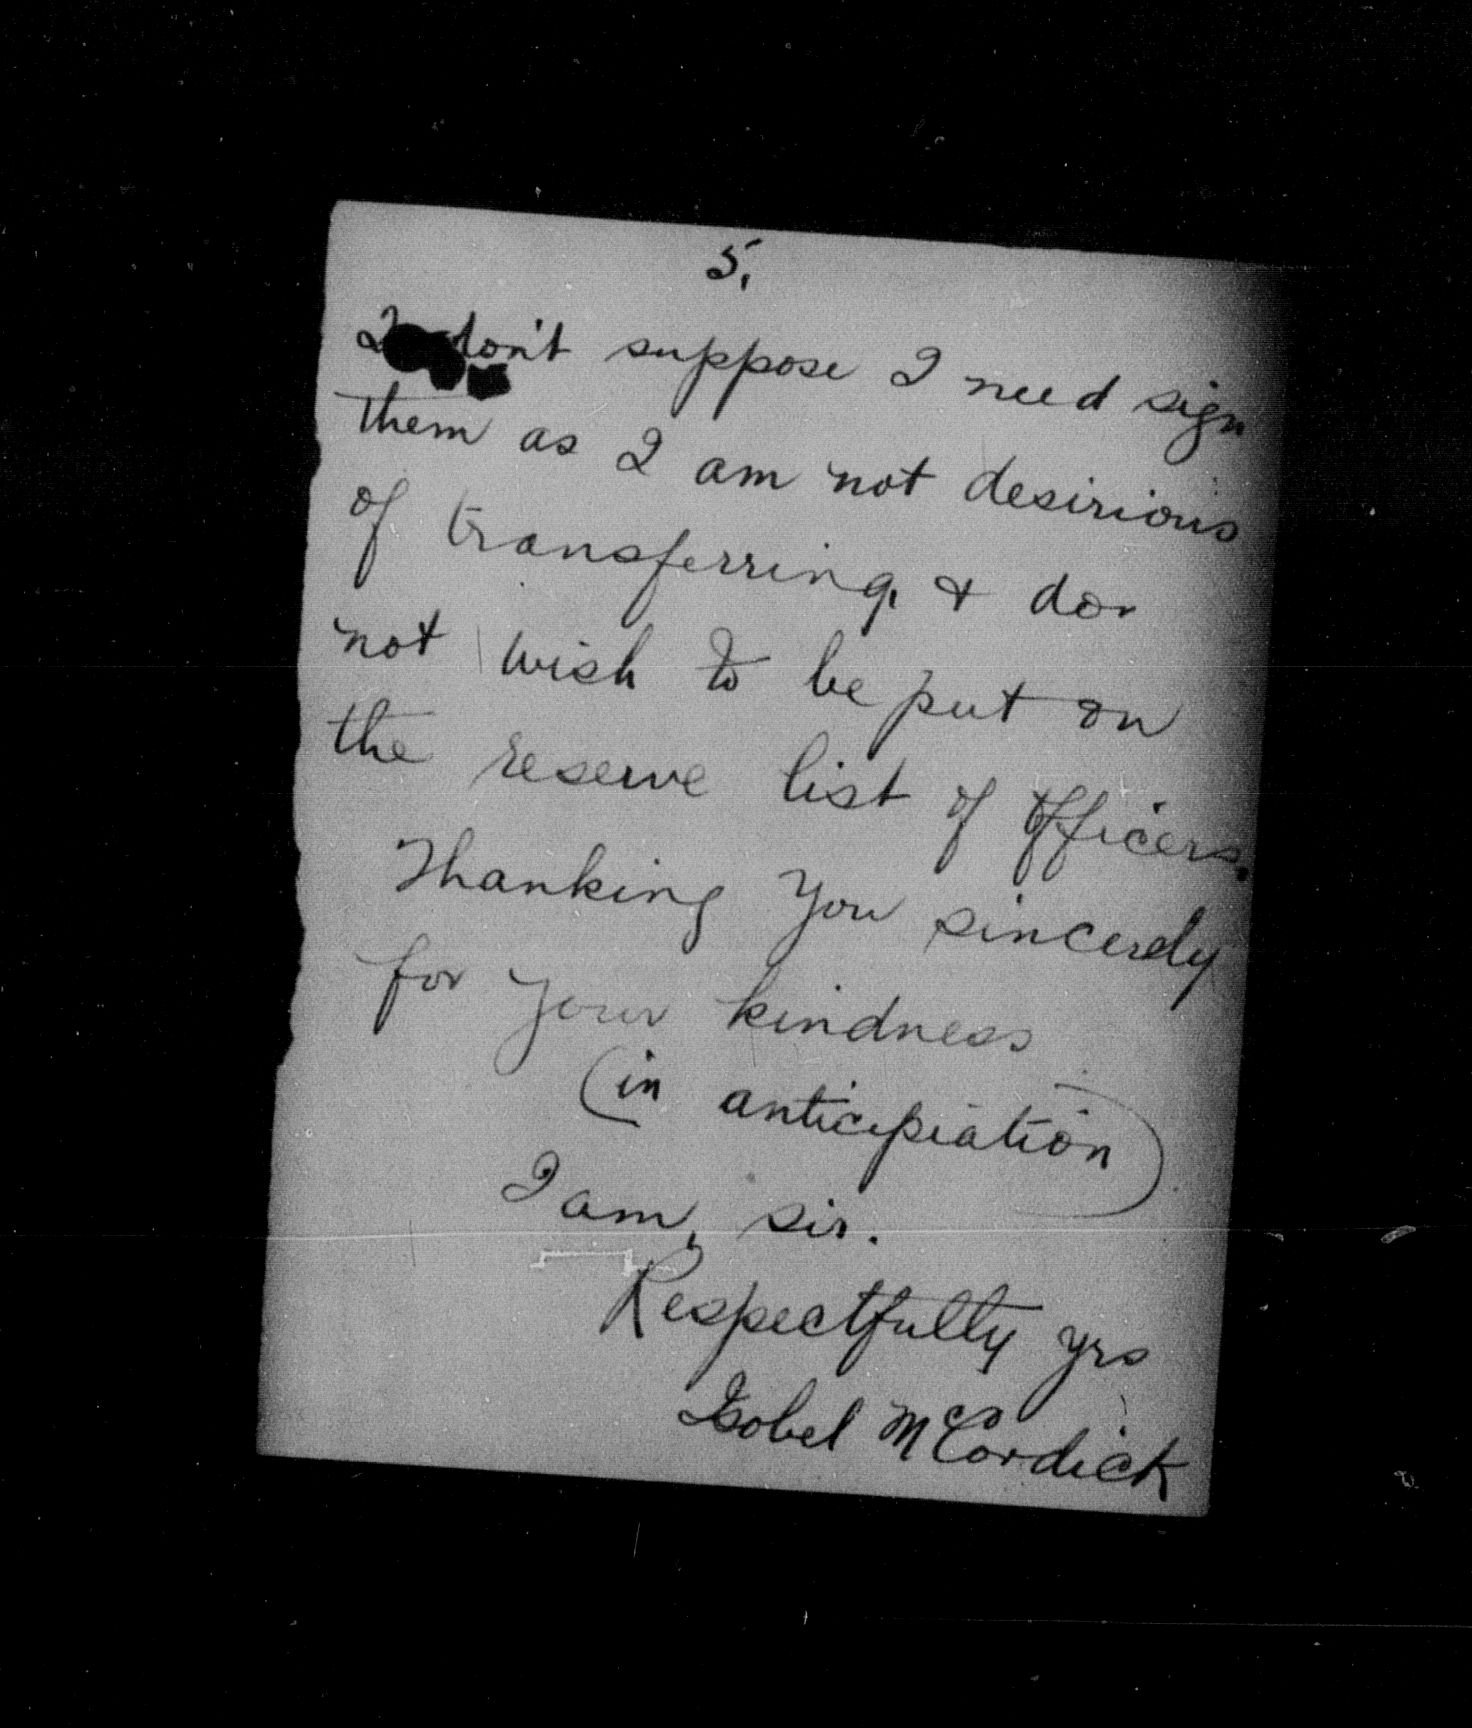 5.
I don't suppose I need sign
them as I am not desirious
of transferring, & do
not wish to be put on
the reserve list of officers.
Thanking you sincerely
for your kindness
(in anticipiation)
I am, sir.
Respectfully yrs
Isobel McCordick